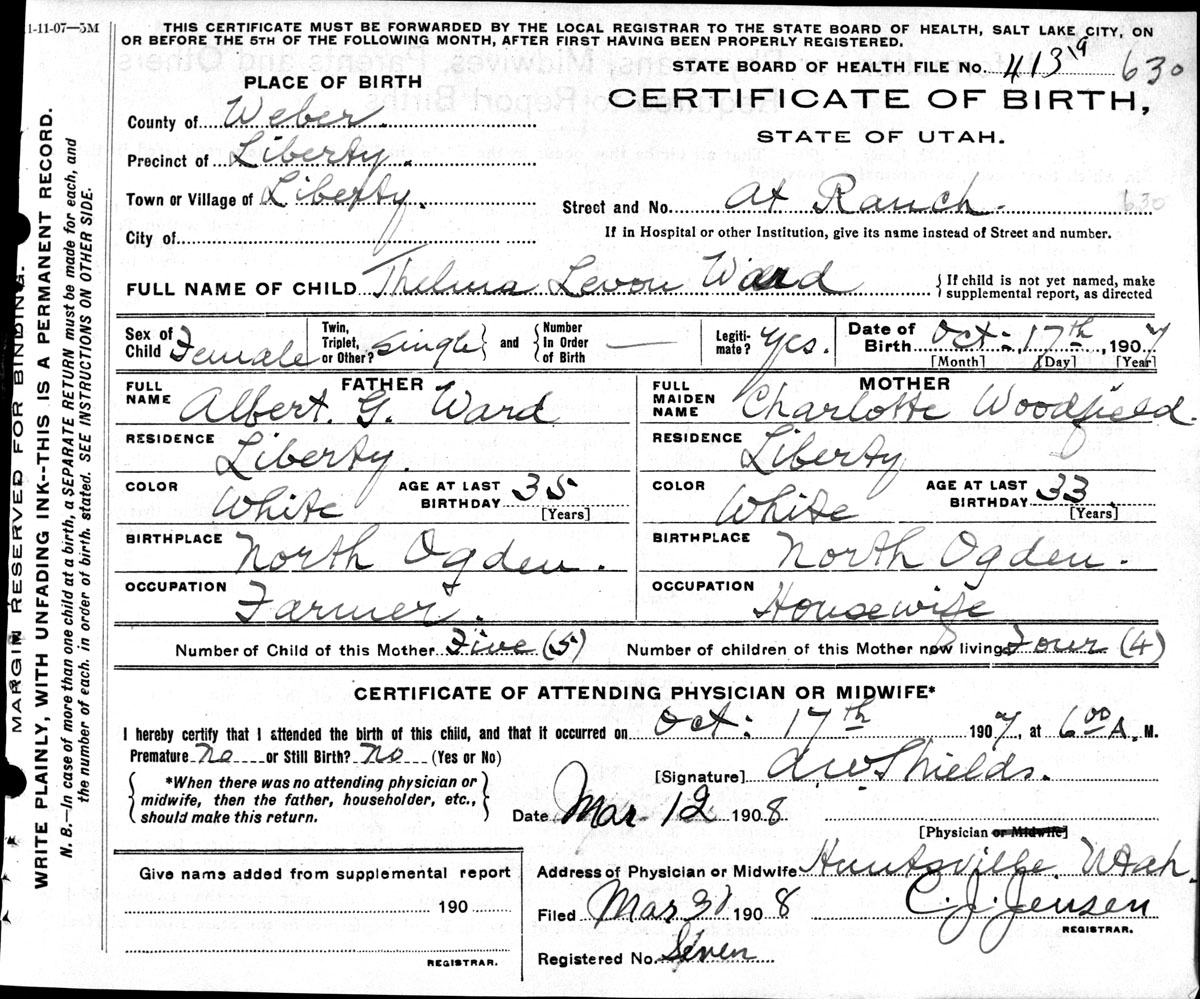 1-11-07—5M
THIS CERTIFICATE MUST BE FORWARDED BY THE LOCAL REGISTRAR TO THE STATE BOARD OF HEALTH, SALT LAKE CITY, ON
OR BEFORE THE 5TH OF THE FOLLOWING MONTH, AFTER FIRST HAVING BEEN PROPERLY REGISTERED.
STATE BOARD OF HEALTH FILE NO. 413 19 630
PLACE OF BIRTH
CERTIFICATE OF BIRTH,
STATE OF UTAH.
County of Weber.
Precinct of Liberty.
Town or Village of Liberty.
Street and No. At Ranch. 630
City of
If in Hospital or other Institution, give its name instead of Street and number.
FULL NAME OF CHILD Thelma Levon Ward
{If child is not yet named, make
supplemental report, as directed
Sex of Child Female
Twin, Triplet, or Other? Single } and { Number In Order of Birth —
Legitimate? Yes.
Date of Birth Oct: 17th, 1907
[Month] [Day] [Year]
FATHER
FULL NAME Albert. G. Ward
RESIDENCE Liberty.
COLOR White AGE AT LAST BIRTHDAY 35 [Years]
BIRTHPLACE North Ogden.
OCCUPATION Farmer.
MOTHER
FULL MAIDEN NAME Charlotte Woodfield.
RESIDENCE Liberty
COLOR White AGE AT LAST BIRTHDAY 33 [Years]
BIRTHPLACE North Ogden.
OCCUPATION Housewife
Number of Child of this Mother Five (5) Number of children of this Mother now living Four (4)
CERTIFICATE OF ATTENDING PHYSICIAN OR MIDWIFE*
I hereby certify that I attended the birth of this child, and that it occurred on Oct: 17th 1907, at 6 00 A. M.
Premature no or Still Birth? no (Yes or No)
*When there was no attending physician or
midwife, then the father, householder, etc.,
should make this return.
[Signature] A W Shields.
Date Mar 12 1908
[Physician or Midwife]
Address of Physician or Midwife Huntsville. Utah.
Give name added from supplemental report
190
REGISTRAR.
Filed Mar 31 1908 C. J. Jensen
REGISTRAR.
Registered No. Seven
MARGIN RESERVED FOR BINDING.
WRITE PLAINLY, WITH UNFADING INK--THIS IS A PERMANENT RECORD.
N. B.—In case of more than one child at a birth, a SEPARATE RETURN must be made for each, and
the number of each, in order of birth, stated. SEE INSTRUCTIONS ON OTHER SIDE.